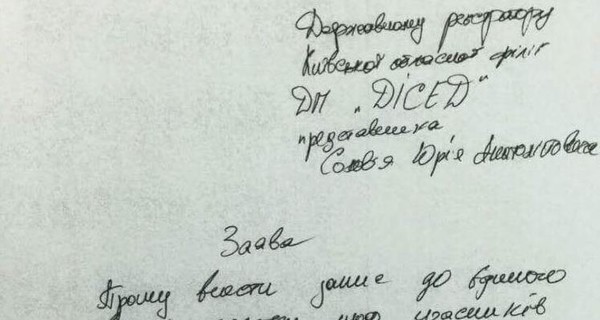 Державному реєстратору
Київської обласної філії
ДП „ДІСЕД"
представника
Солов'я Юрія Анатолійовича
Заява
Прошу внести запис до єдиного
учасників